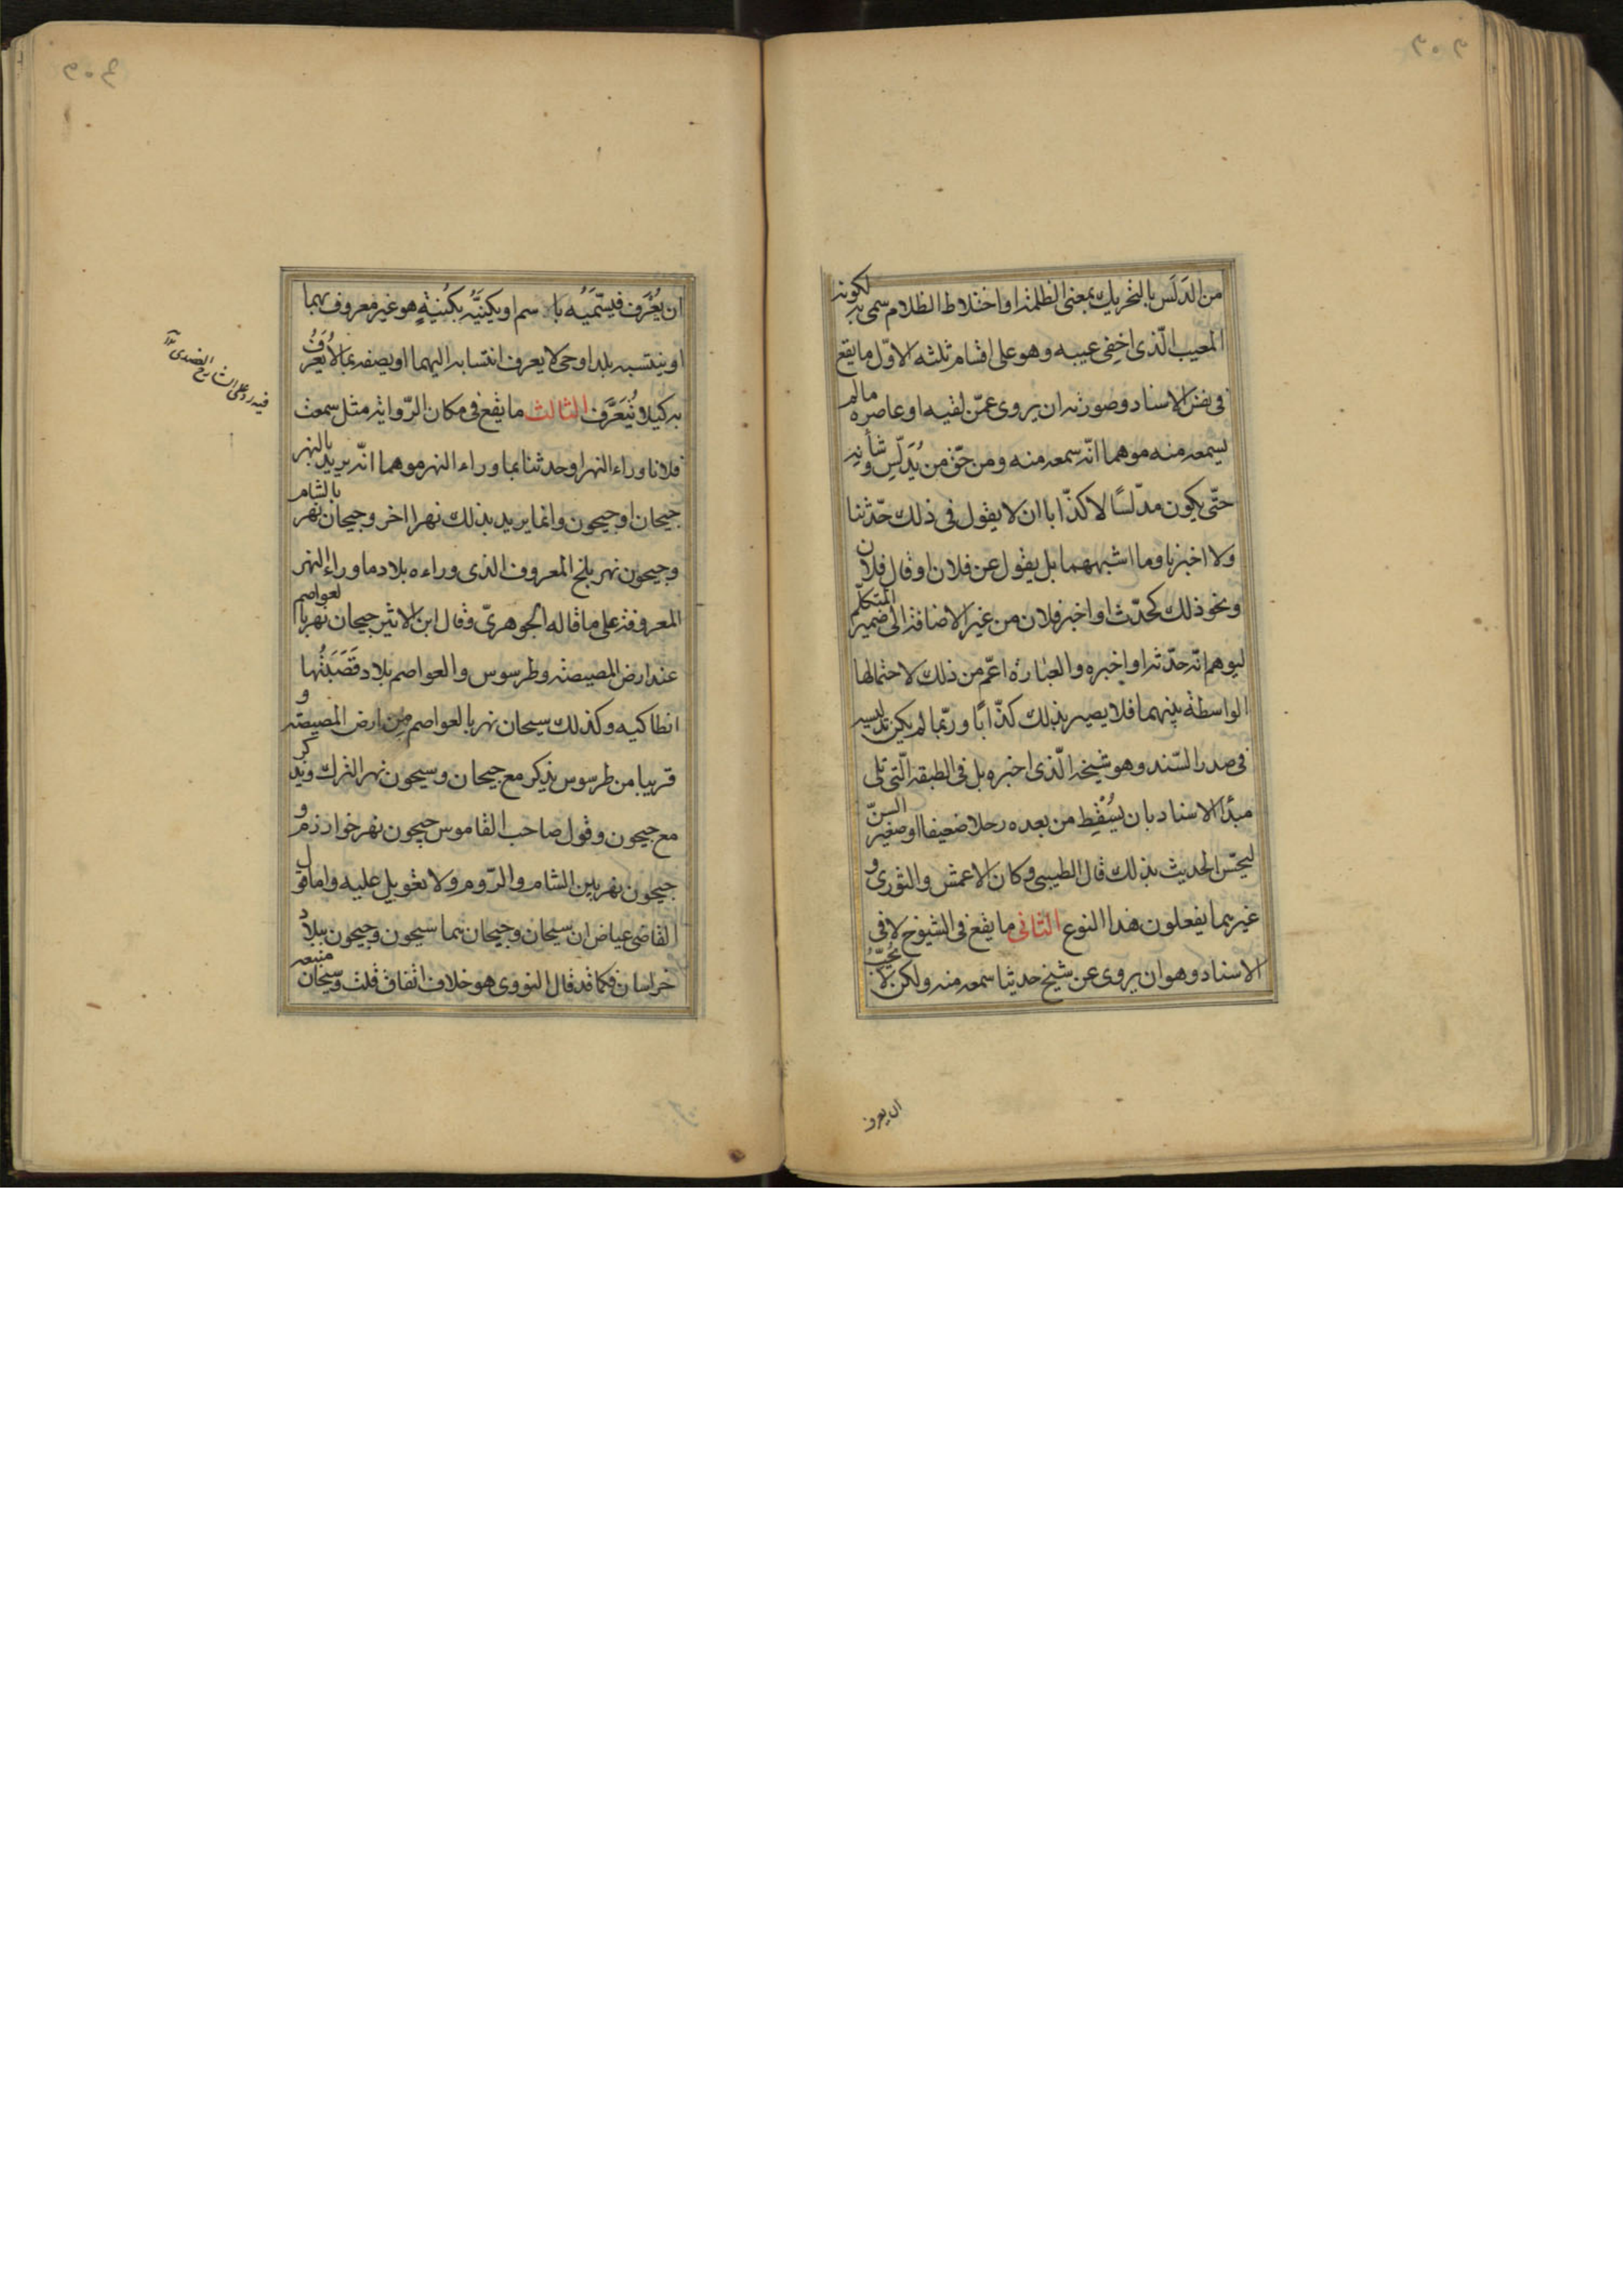 من الدَلَس بالتحريك بمعنى الظلمة او اختلاط الظلام سمى به لكونه
المعيب الّذى اخفى عيبه وهو على اقسام ثلثه الاوّل ما يقع
فى نفس الاسناد وصورته ان يروى عمّن لقيه او عاصره ما لم
يسمعه منه موهما انّه سمعه منه ومن حقّ من يُدَلّس وشأنه
حتّى يكون مدلّسًا لا كذّابا ان لا يقول فى ذلك حدّثنا
ولا اخبرنا وما اشبههما بل يقول عن فلان او قال فلان
ونحو ذلك كحدّث او اخبر فلان من غير الاضافة الى ضمير المتكلّم
ليوهم انّه حدّثه او اخبره والعبارة اعمّ من ذلك لاحتمالها
الواسطة بينهما فلا يصير بذلك كذّابًا وربّما لم يكن تدليسه
فى صدر السّند وهو شيخه الّذى اخبره بل فى الطبقه الّتى تلى
مبدأ الاسناد بان يُسْقِط من بعده رجلا ضعيفا او صغير السنّ
ليحسّن الحديث بذلك قال الطيبى وكان الاعمش والثورى و
غيرهما يفعلون هذا النوع الثانى ما يقع فى الشيوخ لا فى
الاسناد وهو ان يروى عن شيخ حديثا سمعه منه ولكن لا يُحبّ
ان يعرف
ان يُعْرَف فيسمّيه باسم او يكنيّه بكُنيةٍ هو غير معروف بهما
او ينسبه بلد او حى لا يعرف انتسابه اليهما او يصفه بما لا يُعرَفُ
به كيلا يُعَرَّف الثالث ما يقع فى مكان الرّواية مثل سمعت
فلانا وراء النهر او حدثنا بما وراء النهر موهما انّه يريد بالنهر
جيحان او جيحون وانما يريد بذلك نهرا اخر وجيحان نهر بالشام
وجيحون نهر بلخ المعروف الذى وراءه بلاد ما وراء النهر
المعروفة على ما قاله الجوهرىّ وقال ابن الاثير جيحان نهر بالعواصم
عند ارض المصيصة وطرسوس والعواصم بلاد قَصَبَتُها
انطاكيه وكذلك سيحان نهر بالعواصم من ارض المصيصة و
قريبا من طرسوس يذكر مع جيحان وسيحون نهر الترك ويذكر
مع جيحون وقول صاحب القاموس جيحون نهر خوارزم و
جيحون نهر بين الشام والرّوم ولا تعويل عليه واما قول
القاضى عياض ان سيحان وجيحان هما سيحون وجيحون ببلاد
خراسان فكما قد قال النووى هو خلاف اتفاق قلت وسيحان منبعه
فيه رد على الشارح